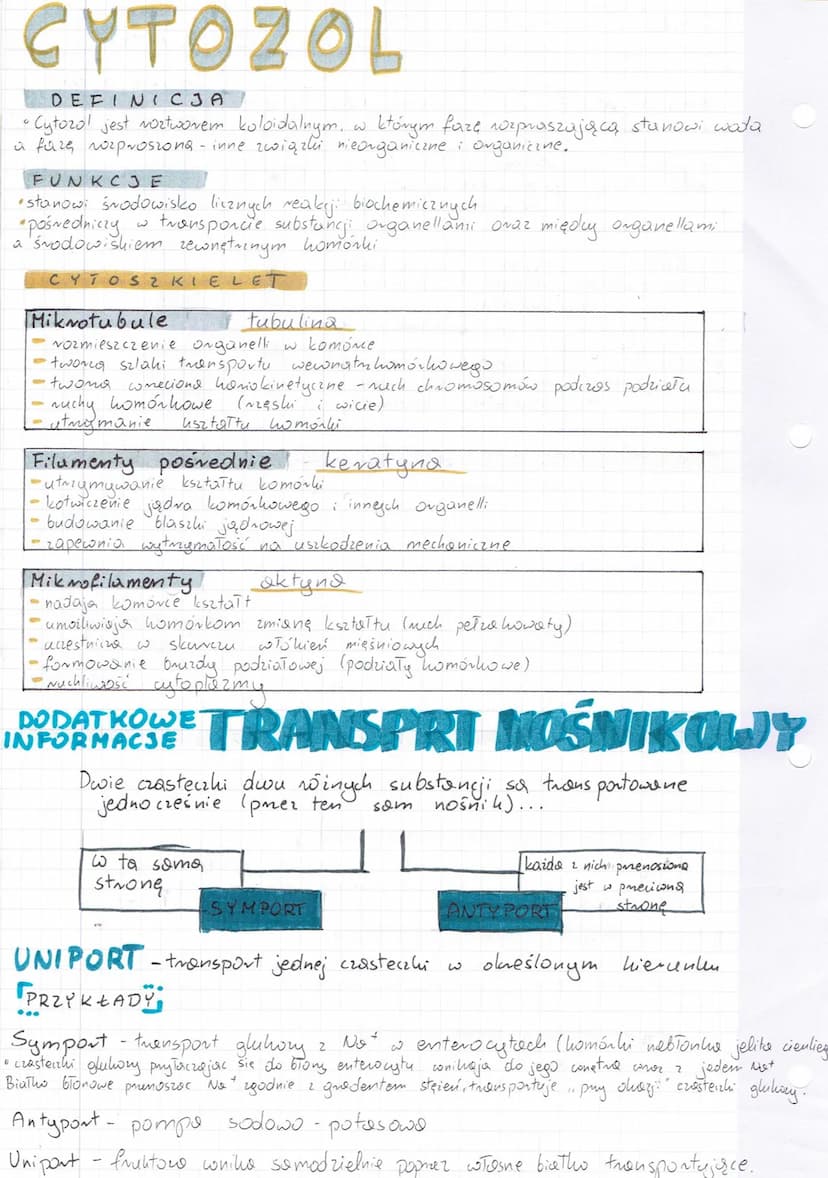 CYTOZOL
DEFINICJA
• Cytozol jest roztworem koloidalnym, w którym fazę rozpraszającą stanowi woda
a fazę rozproszoną - inne związki nieorganiczne i organiczne.
FUNKCJE
• stanowi środowisko licznych reakcji biochemicznych
• pośredniczy w transporcie substancji organellami oraz między organellami
a środowiskiem zewnętrznym komórki
CYTOSZKIELET
Mikrotubule tubulina
- rozmieszczenie organelli w komórce
- tworzą szlaki transportu wewnątrzkomórkowego
- tworzą wrzeciono kariokinetyczne - ruch chromosomów podczas podziału
- ruchy komórkowe (rzęski i wicie)
- utrzymanie kształtu komórki
Filamenty pośrednie - keratyna
- utrzymywanie kształtu komórki
- kotwiczenie jądra komórkowego i innych organelli
- budowanie blaszki jądrowej
- zapewnia wytrzymałość na uszkodzenia mechaniczne
Mikrofilamenty aktyna
- nadają komórce kształt
- umożliwiają komórkom zmianę kształtu (ruch pełzakowaty)
- uczestniczą w skurczu włókien mięśniowych
- formowanie bruzdy podziałowej (podziały komórkowe)
- ruchliwość cytoplazmy
DODATKOWE INFORMACJE TRANSPRT NOŚNIKOWY
Dwie cząsteczki dwu różnych substancji są transportowane
jednocześnie (przez ten sam nośnik)...
w tą samą
stronę
SYMPORT
każda z nich przenoszona
jest w przeciwną
stronę
ANTYPORT
UNIPORT - transport jednej cząsteczki w określonym kierunku
PRZYKŁADY:
Symport - transport glukozy z Na⁺ w enterocytach (komórki nabłonka jelita
• cząsteczki glukozy przyłączając się do błony enterocytu wnikają do jego wnętrza wraz z jedem Na⁺
Białko błonowe przenosząc Na⁺ zgodnie z gradentem stężeń, transportuje "przy okazji" cząsteczki glukozy.
Antyport - pompa sodowo - potasowa
Uniport - fruktoza wnika samodzielnie poprzez własne białko transportujące.